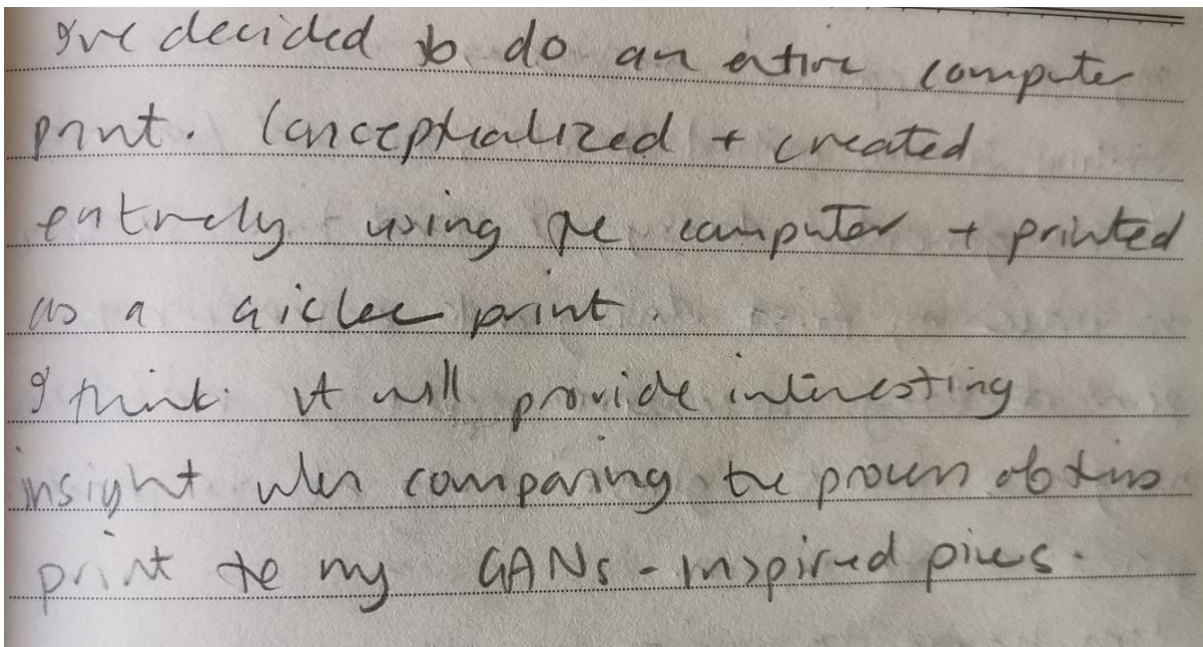 I've decided to do an entire computer
print. Conceptualized + created
entirely using the computer + printed
as a giclee print.
I think it will provide interesting
insight when comparing the process of this
print to my GANs-inspired pieces.